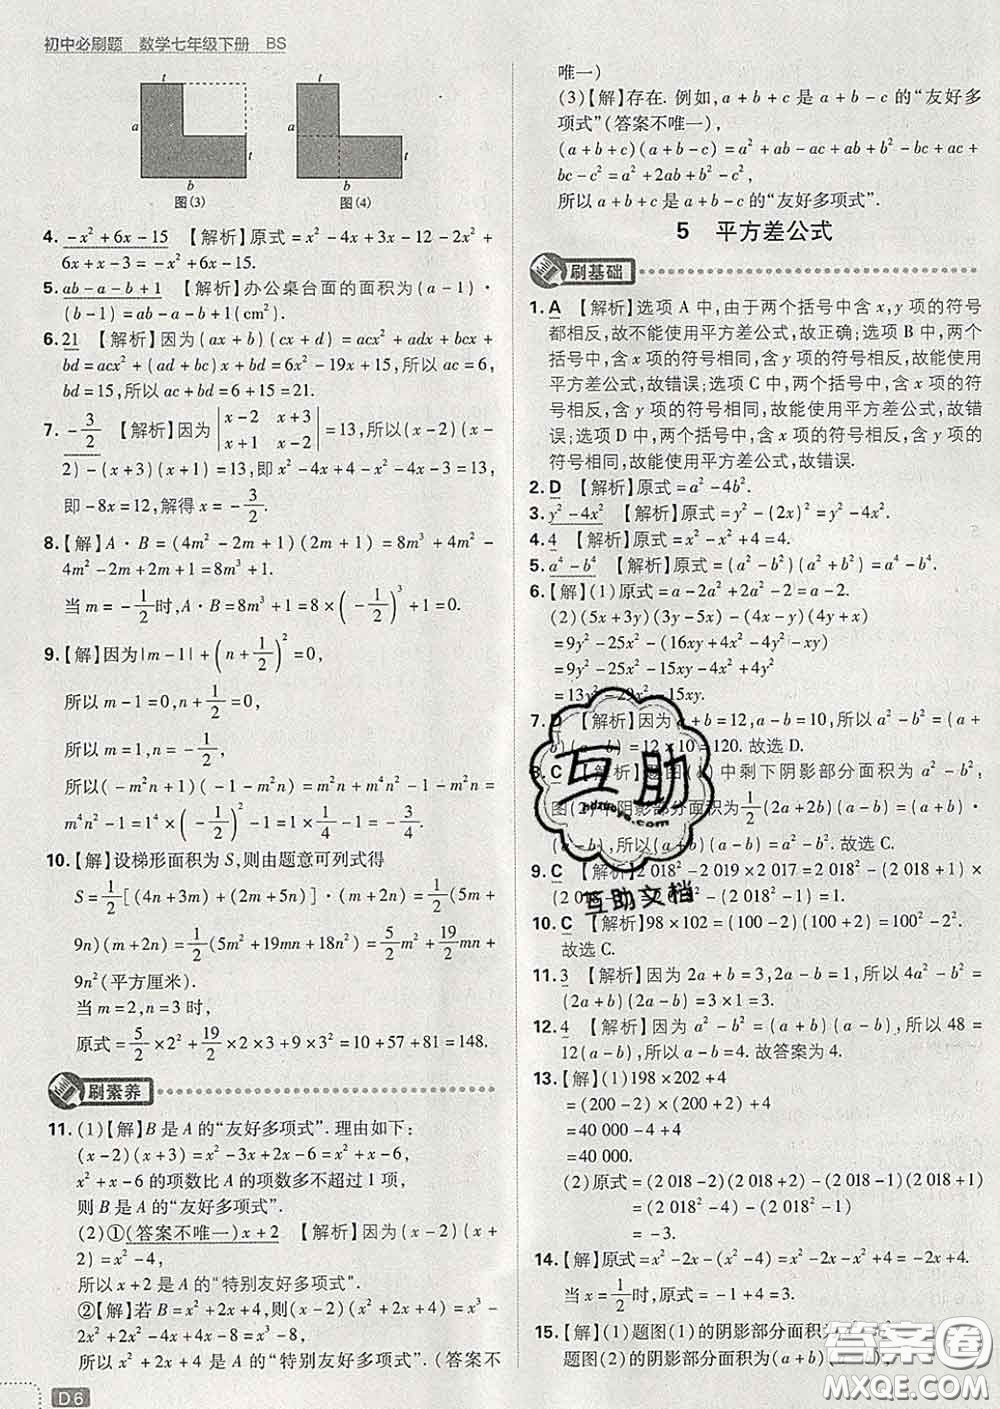 初中必刷题 数学七年级下册 BS
t t
a a
t t
b b
图(3) 图(4)
4. -x²+6x-15 【解析】原式=x²-4x+3x-12-2x²+
6x+x-3=-x²+6x-15.
5. ab-a-b+1 【解析】办公桌台面的面积为(a-1)·
(b-1)=ab-a-b+1(cm²).
6. 21 【解析】因为(ax+b)(cx+d)=acx²+adx+bcx+
bd=acx²+(ad+bc)x+bd=6x²-19x+15,所以ac=6,
bd=15,所以ac+bd=6+15=21.
7. -3/2 【解析】因为|x-2 x+3; x+1 x-2|=13,所以(x-2)(x-
2)-(x+3)(x+1)=13,即x²-4x+4-x²-4x-3=13,
即-8x=12,解得x=-3/2.
8. 【解】A·B=(4m²-2m+1)(2m+1)=8m³+4m²-
4m²-2m+2m+1=8m³+1.
当m=-1/2时,A·B=8m³+1=8×(-1/2)³+1=0.
9. 【解】因为|m-1|+(n+1/2)²=0,
所以m-1=0,n+1/2=0,
所以m=1,n=-1/2,
所以(-m²n+1)(-1-m²n)=(-m²n)²-1=
m⁴n²-1=1⁴×(-1/2)²-1=1×1/4-1=-3/4.
10. 【解】设梯形面积为S,则由题意可列式得
S=1/2[(4n+3m)+(2m+5n)]·(m+2n)=1/2(5m+
9n)(m+2n)=1/2(5m²+19mn+18n²)=5/2m²+19/2mn+
9n²(平方厘米).
当m=2,n=3时,
原式=5/2×2²+19/2×2×3+9×3²=10+57+81=148.
刷素养
11. (1)【解】B是A的“友好多项式”.理由如下:
(x-2)(x+3)=x²-2x+3x-6=x²+x-6,
x²+x-6的项数比A的项数多不超过1项,
则B是A的“友好多项式”.
(2)①(答案不唯一)x+2 【解析】因为(x-2)(x+
2)=x²-4,
所以x+2是A的“特别友好多项式”.
②【解】若B=x²+2x+4,则(x-2)(x²+2x+4)=x³-
2x²+2x²-4x+4x-8=x³-8,
所以x²+2x+4是A的“特别友好多项式”.(答案不
D6
唯一)
(3)【解】存在.例如,a+b+c是a+b-c的“友好多
项式”(答案不唯一),
(a+b+c)(a+b-c)=a²+ab-ac+ab+b²-bc+ac+
bc-c²=a²+2ab+b²-c²,
所以a+b+c是a+b-c的“友好多项式”.
5 平方差公式
刷基础
1. A 【解析】选项A中,由于两个括号中含x,y项的符号
都相反,故不能使用平方差公式,故正确;选项B中,两个
括号中,含x项的符号相同,含y项的符号相反,故能使用
平方差公式,故错误;选项C中,两个括号中,含x项的符
号相反,含y项的符号相同,故能使用平方差公式,故错
误;选项D中,两个括号中,含x项的符号相反,含y项的
符号相同,故能使用平方差公式,故错误.
2. D 【解析】原式=a²-4b².
3. y²-4x² 【解析】原式=y²-(2x)²=y²-4x².
4. 4 【解析】原式=x²-x²+4=4.
5. a⁴-b⁴ 【解析】原式=(a²-b²)(a²+b²)=a⁴-b⁴.
6. 【解】(1)原式=a-2a²+2a²-2=a-2.
(2)(5x+3y)(3y-5x)-(4x-y)(4y+x)
=9y²-25x²-(16xy+4x²-4y²-xy)
=9y²-25x²-15xy-4x²+4y²
=13y²-29x²-15xy.
7. D 【解析】因为a+b=12,a-b=10,所以a²-b²=(a+
b)(a-b)=12×10=120.故选D.
8. C 【解析】题图(1)中剩下阴影部分面积为a²-b²,
图(2)中阴影部分面积为1/2(2a+2b)(a-b)=(a+b)·
(a-b),所以(a+b)(a-b)=a²-b².故选C.
9. C 【解析】2 018²-2 019×2 017=2 018²-(2 018+1)
×(2 018-1)=2 018²-(2 018²-1)=1.故选C.
10. C 【解析】98×102=(100-2)(100+2)=100²-2².
故选C.
11. 3 【解析】因为2a+b=3,2a-b=1,所以4a²-b²=
(2a+b)(2a-b)=3×1=3.
12. 4 【解析】因为a²-b²=(a+b)(a-b),所以48=
12(a-b),所以a-b=4.故答案为4.
13. 【解】(1)198×202+4
=(200-2)(200+2)+4
=40 000-4+4
=40 000.
(2)原式=(2 018-2)(2 018+2)-(2 018-1)(2 018+1)
=(2 018²-2²)-(2 018²-1²)
=2 018²-4-2 018²+1
=-3.
14. 【解】原式=x²-2x-(x²-4)=x²-2x-x²+4=-2x+4.
当x=1/2时,原式=-1+4=3.
15. 【解】(1)题图(1)的阴影部分面积为
题图(2)的阴影部分面积为(a+b)(
互助
hdzuoye.com
互助文档
答案圈
MXQE.COM